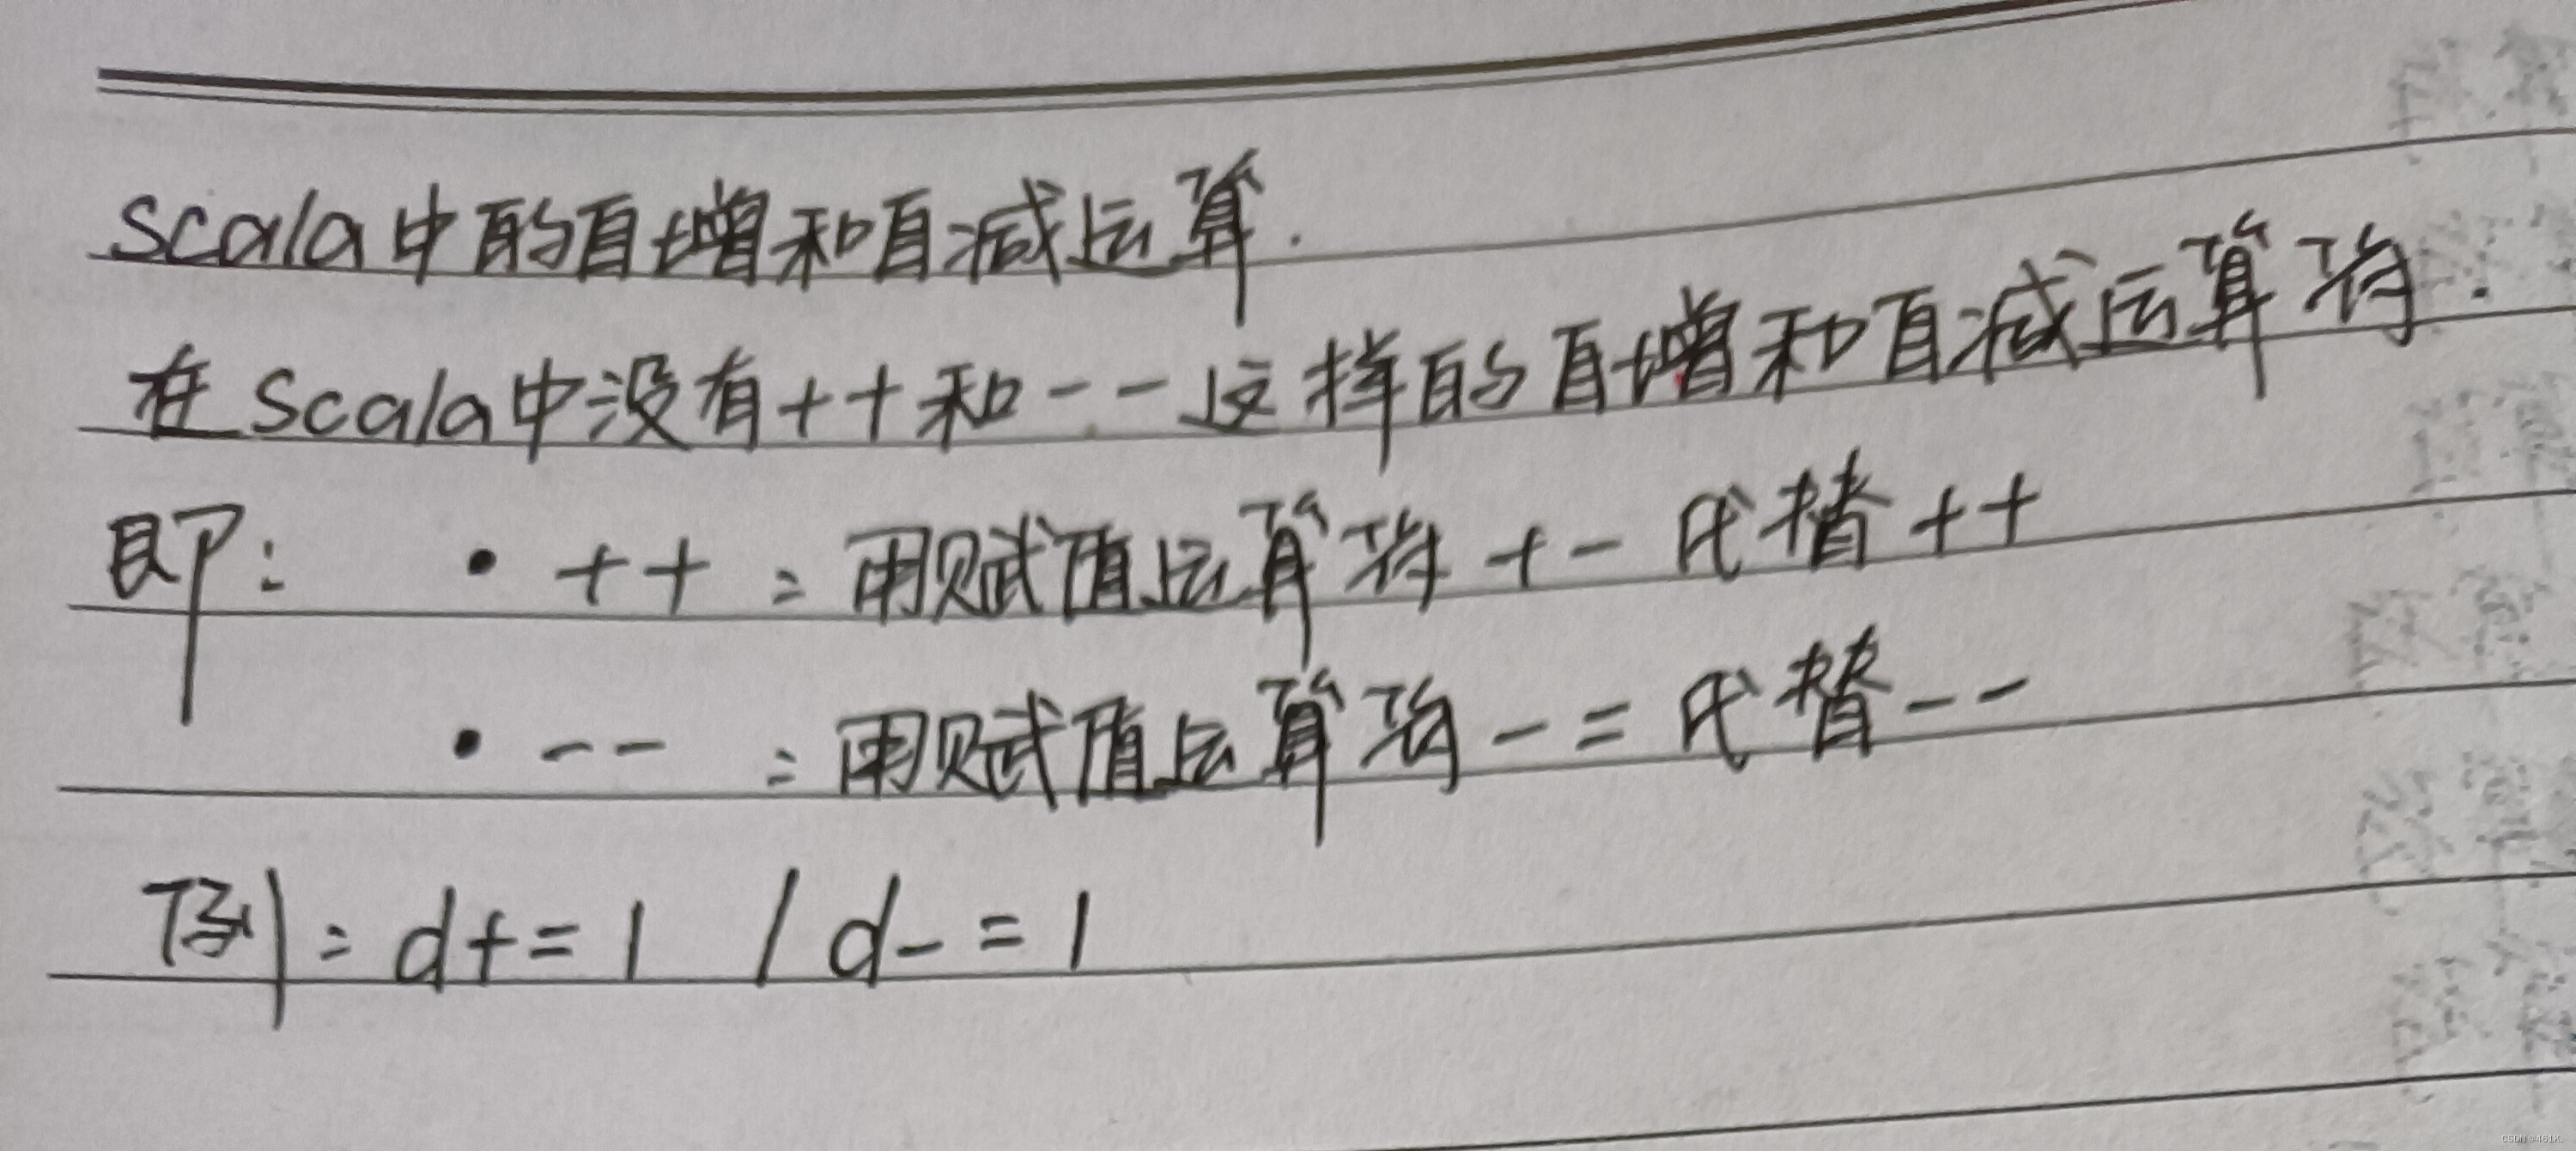 Scala中的自增和自减运算.
在Scala中没有++和--这样的自增和自减运算符.
即: • ++ : 用赋值运算符 +- 代替 ++
• -- : 用赋值运算符 -= 代替 --
例: d+=1 / d-=1
CSDN @461K.